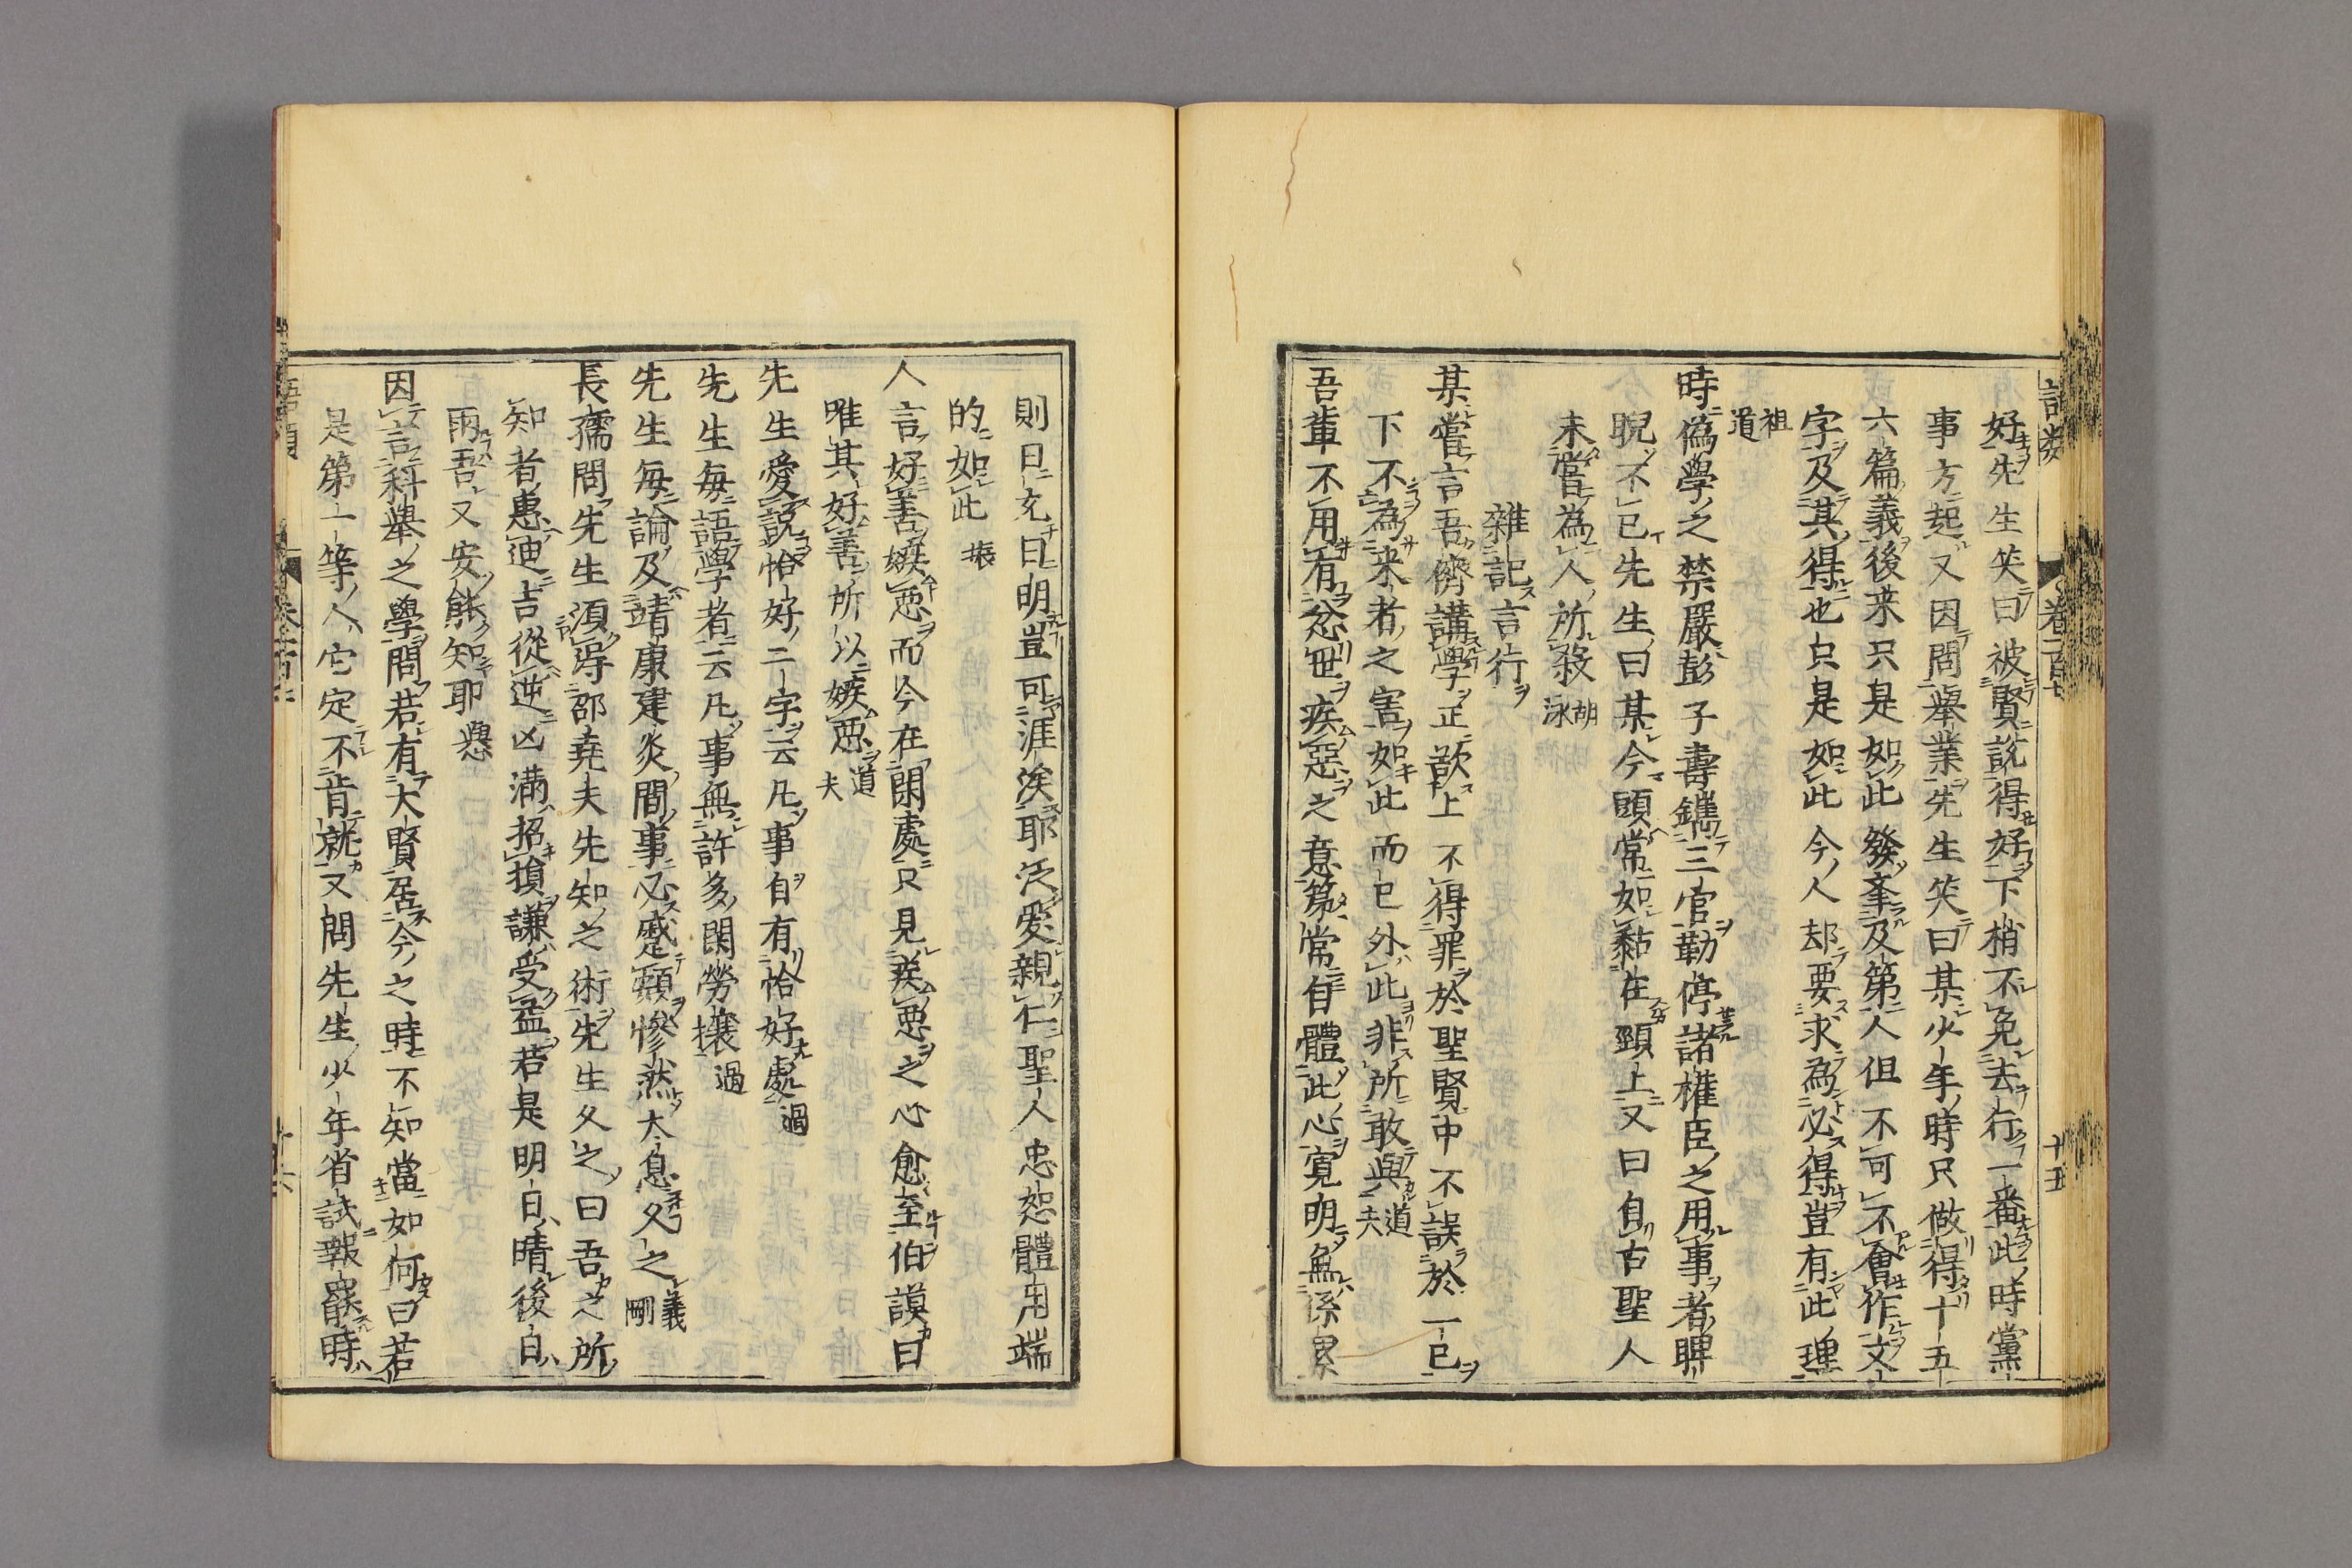 語類 卷一百七 十五
好先生笑曰被賢說得好下梢不免去行一番此時黨
事方起又因問舉業先生笑曰某少年時只做得十五
六篇義後来只是如此發擧及第人但不可不會作文
字及其得也只是如此今人却要求為必得豈有此理
祖道
時僞學之禁嚴彭子壽鐫三官勒停諸權臣之用事者睥
睨不已先生曰某今頭常如黏在頸上又曰自古聖人
未嘗為人所殺 胡泳
雜記言行
某嘗言吾儕講學正欲上不得罪於聖賢中不誤於一己
下不為来者之害如此而已外此非所敢與 道夫
吾輩不用有忿世疾惡之意第常自體此心寛明無係累
則日充日明豈可涯涘耶泛愛親仁聖人忠恕體用端
的如此 振
人言好善嫉惡而今在閑處只見疾惡之心愈至伯謨曰
唯其好善所以嫉惡 道夫
先生愛說恰好二字云凡事自有恰好處 過
先生毎語學者云凡事無許多閑勞攘 過
先生毎論及靖康建炎間事必蹙頞慘然太息久之 義剛
長孺問先生須得邵堯夫先知之術先生久之曰吾之所
知者惠迪吉從逆凶滿招損謙受益若是明日晴後日
雨吾又安能知耶 㦛
因言科舉之學問若有大賢居今之時不知當如何曰若
是第一等人它定不肯就又問先生少年省試報罷時
語類 卷一百七 十六